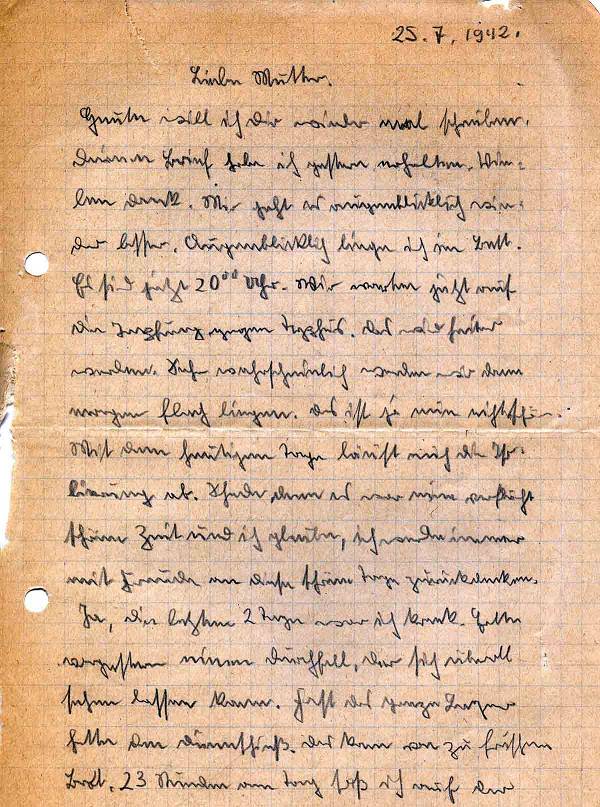 25.7.1942.
Liebe Mutter.
Heute will ich Dir wieder mal schreiben.
Deinen Brief habe ich gestern erhalten. Vie-
len dank. Mir geht es augenblicklich wie-
der besser. Augenblicklich liege ich im Bett.
Es sind jetzt 20⁰⁰ Uhr. Wir warten jetzt auf
die Impfung gegen Typhus. Das wird heiter
werden. Sehr wahrscheinlich werden wir dann
morgen flach liegen. Das ist ja nun nicht schön.
Mit dem heutigen Tage läuft auch die
ab. Schade, denn es war eine
schöne Zeit und ich glaube, ich werde immer
mit Freude an diese schöne Tage zurückdenken.
Ja, die letzten 2 Tage war ich krank. Hatte
vorgestern einen Durchfall, der sich überall
sehen lassen kann. Fast das ganze Lager
hatte den Dünnschiß. Das kam von zu frischem
Brot. 23 Stunden am Tag saß ich auf der